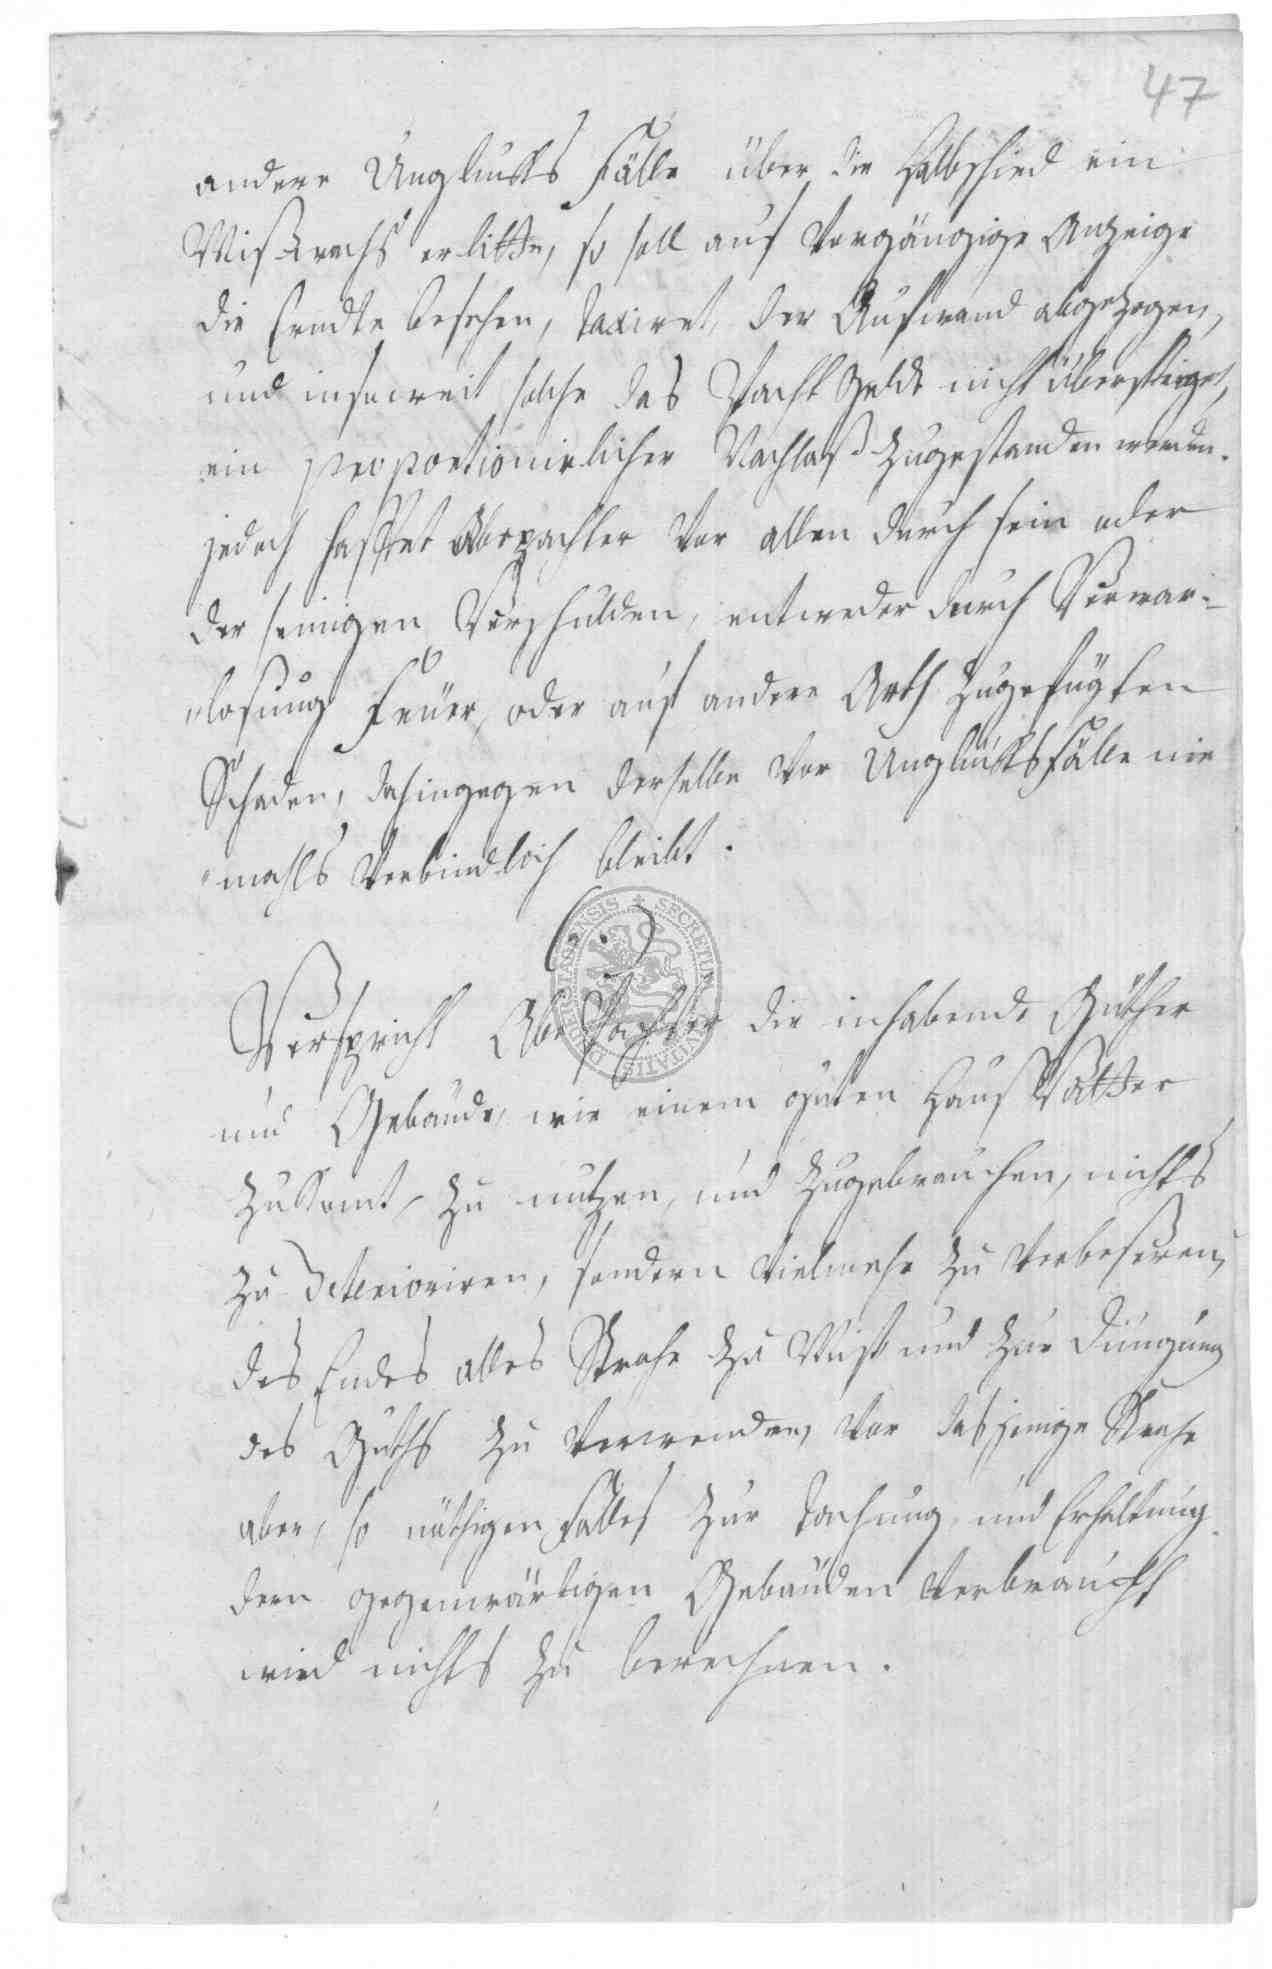 47
andere Unglucks Fälle über die Halbschied ein
Mißwachs erlitte, so soll auf Vorgängige Anzeige
die Erndte besehen, taxiret, der Aufwand abgezogen,
und insoweit solche das Pacht Geldt nicht übersteiget,
ein proportionirlicher Nachlaß zugestanden werden.
jedoch hafftet Abepachter vor allen durch sein oder
der seinigen Verschulden, entweder durch Verwar-
losung Feuer, oder auf andere Arth zugefügten
Schaden, dahingegen derselbe vor Unglücksfälle nie
mahls verbindlich bleibt.
SECRETUM CIVITATIS
Verspricht Abe Pachter die inhabende Güther
und Gebäude, wie einem guten Hauß Vatter
Zustamt, zu nutzen, und zugebrauchen, nichts
zu deterioriren, sondern vielmehr zu verbeßeren,
des Endes alles Strohe zu Mist und zur Düngung
des Guths zu verwenden, vor dasjenige Strohe
aber, so nöthigen Falles zur Dachung, und Erhaltung
deren gegenwärtigen Gebäuden verbraucht
wird nichts zu berechnen.